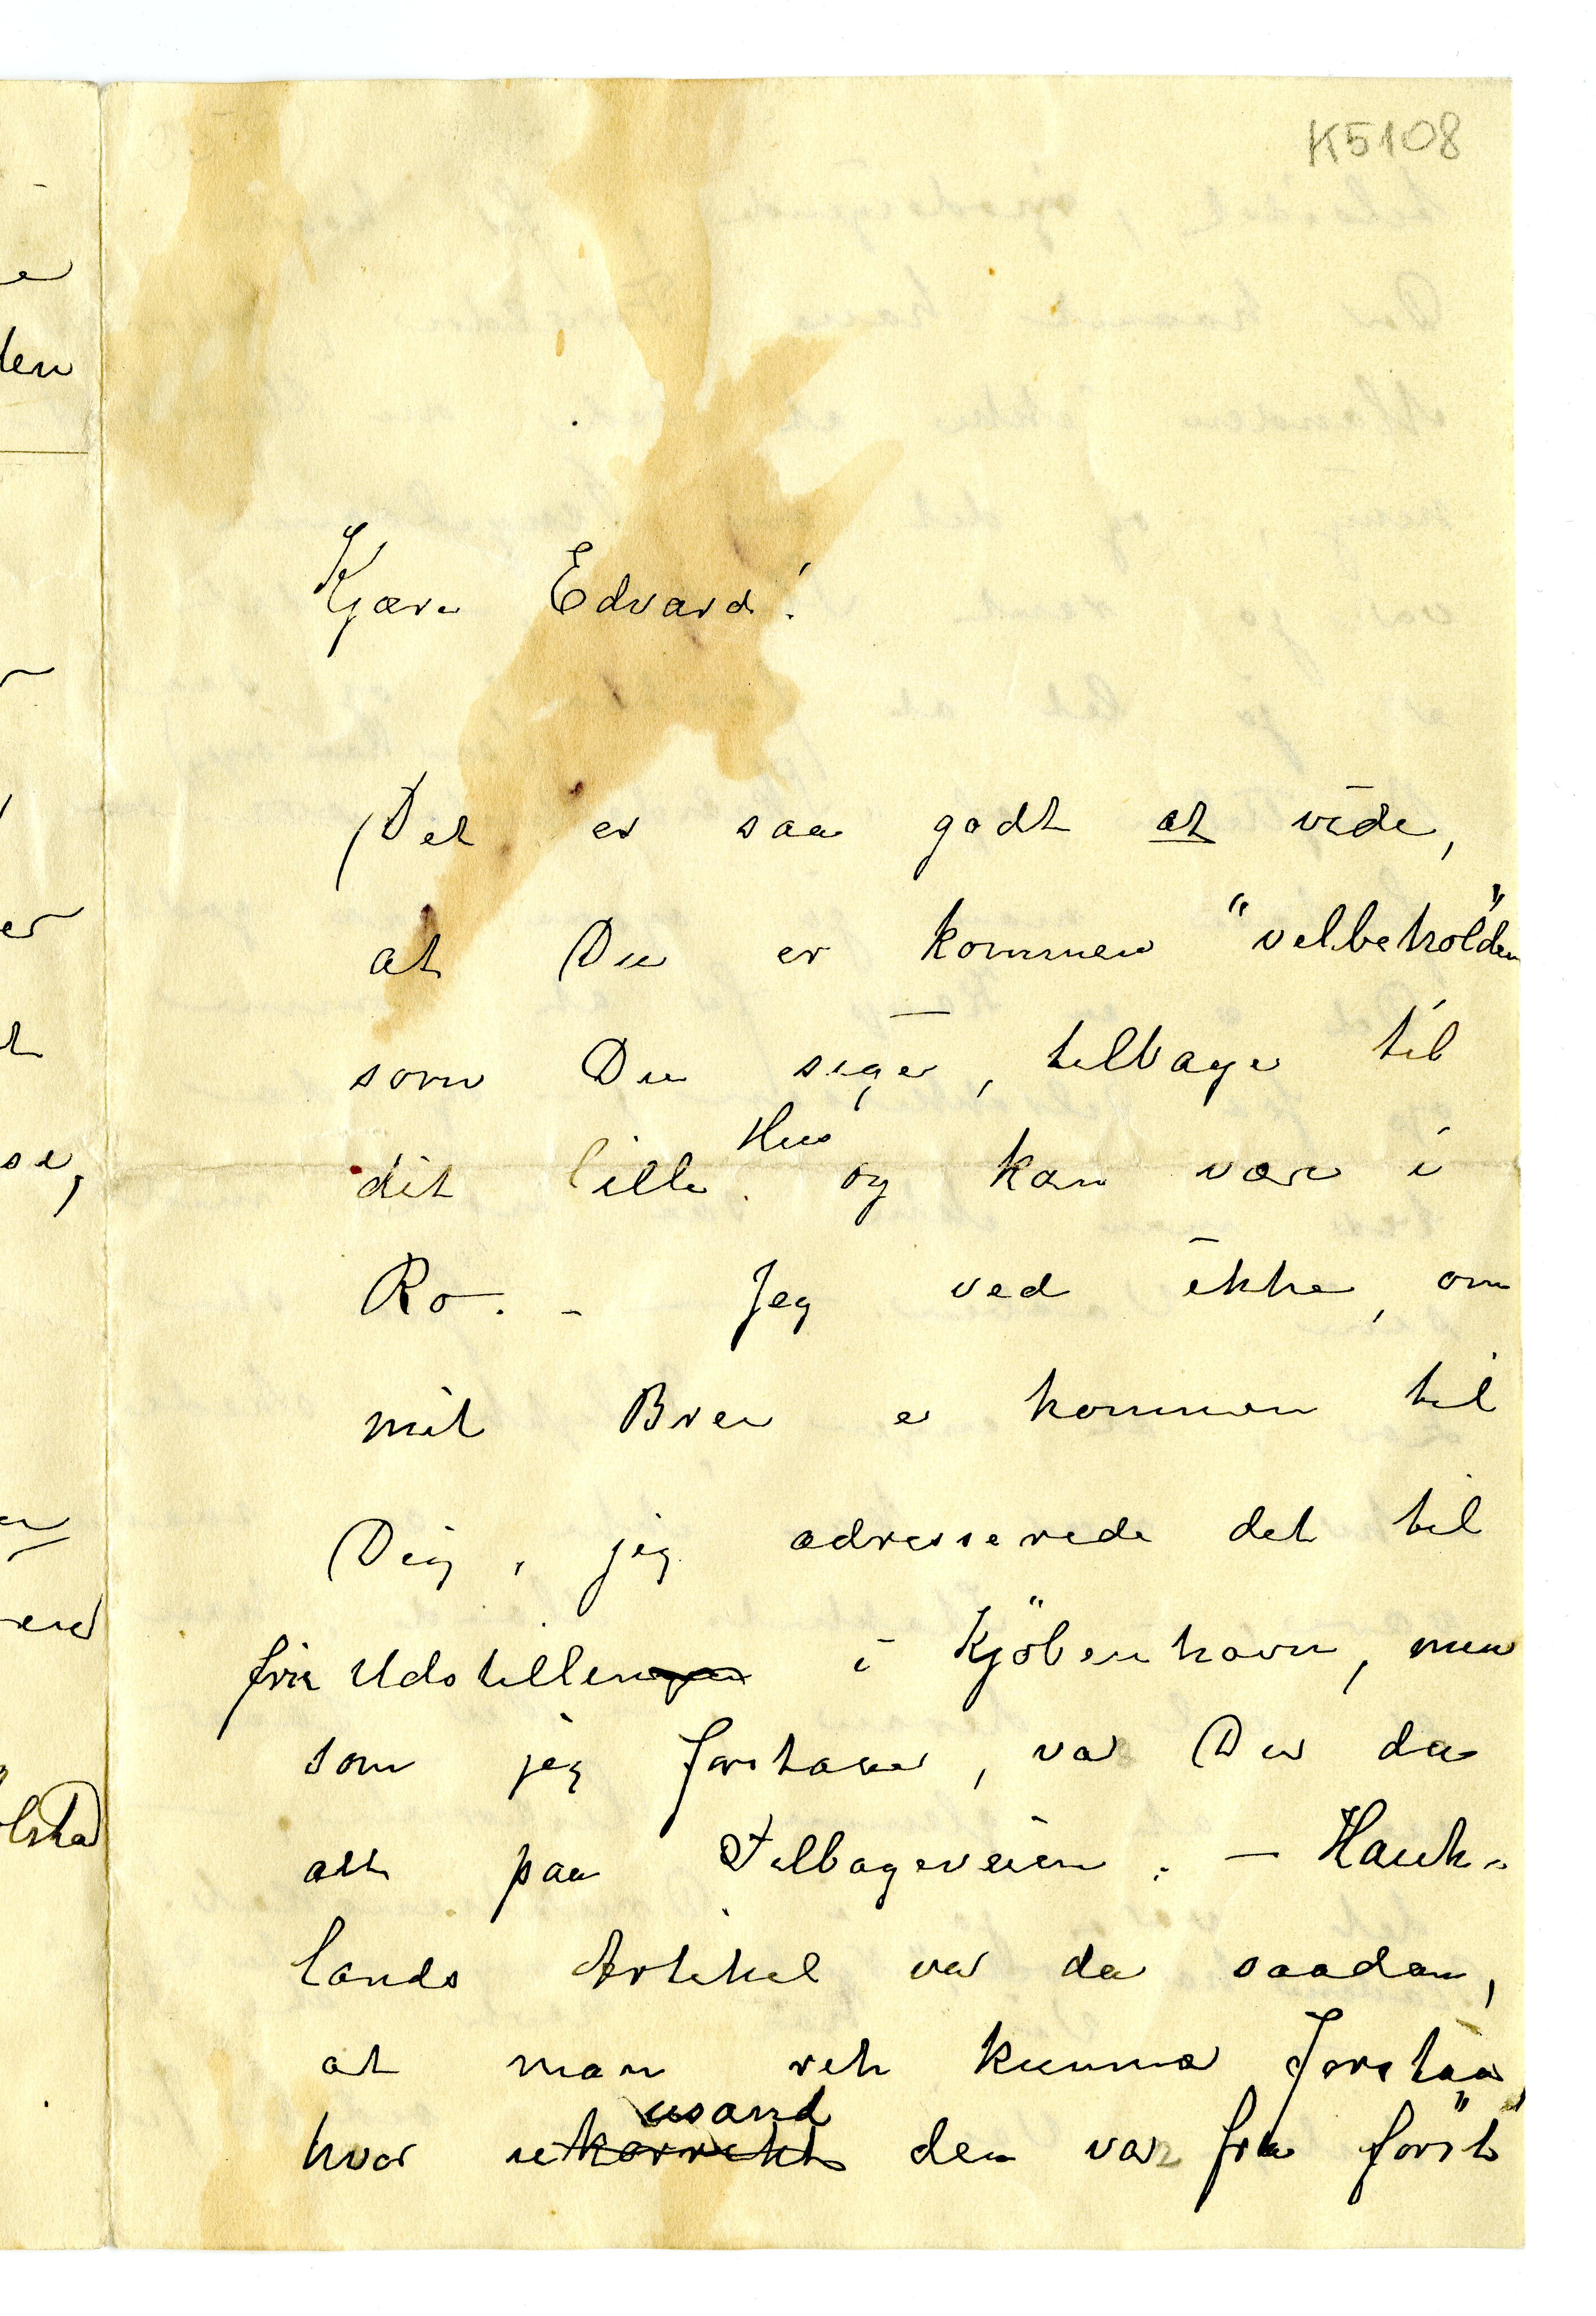 K5108
Kjære Edvard!
Det er saa godt at vide,
at Du er kommen "velbeholden"
som Du siger, tilbage til
dit lille Hus og kan være i
Ro. – Jeg ved ikke, om
mit Brev er kommen til
Dig, jeg adresserede det til
frie Udstillingen i Kjöbenhavn, men
som jeg forstaar, var Du da
alt paa Tilbageveien. – Hauk-
lands Artikel var da saadan,
at man ret kunne forstaa,
hvor ukorrekt usand den var fra först